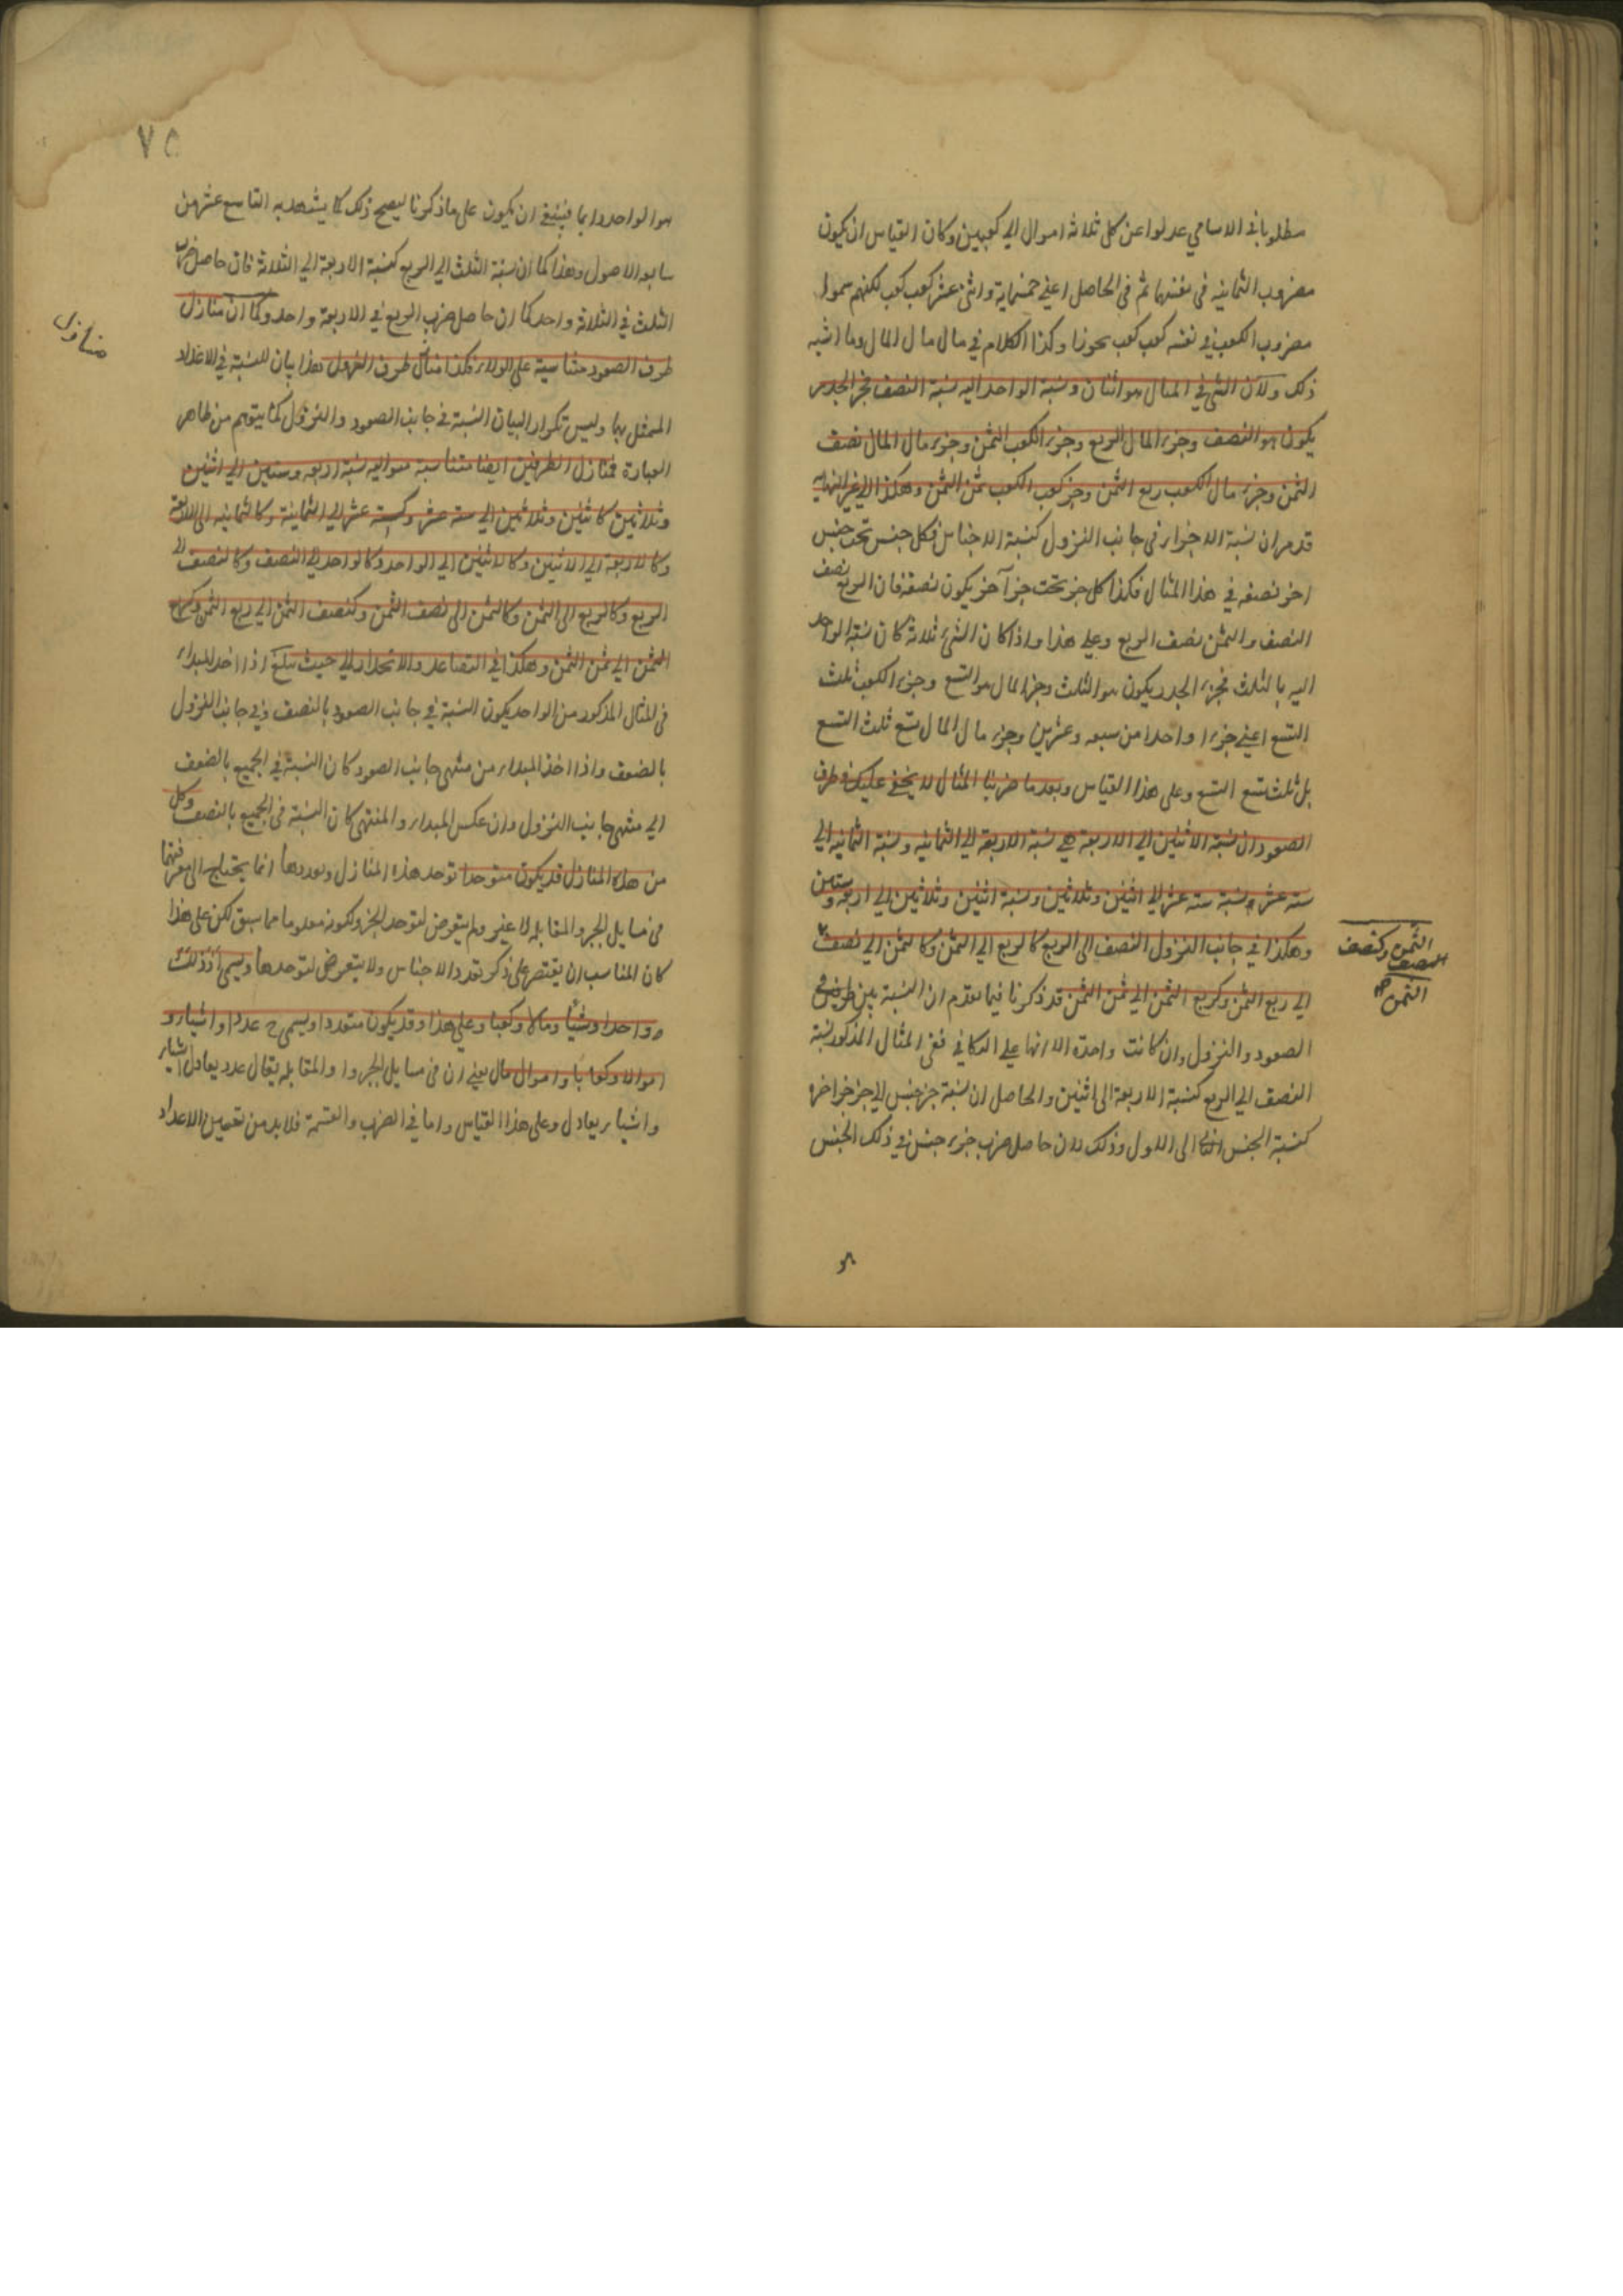 مطلوبا في الاسامي عدلوا عن كل ثلاثه اموال الي كعبين وكان القياس ان يكون
مضروب الثمانيه في نفسها ثم في الحاصل اعني خمسماية واثني عشر كعب كعب كعب لكنهم سموا
مضروب الكعب في نفسه كعب كعب تجوزا وكذا الكلام في مال مال المال وما اشبه
ذلك ولان الشي في المثال هو اثنان ونسبة الواحد اليه نسبة النصف فجزء الجدر
يكون هو النصف وجزء المال الربع وجزء الكعب الثمن وجزء مال المال نصف
الثمن وجزء مال الكعب ربع الثمن وجزء كعب الكعب ثمن الثمن وهكذا الي غير النهايه
قد مر ان نسبة الاجزاء في جانب النزول كنسبة الاجناس فكل جنس تحت جنس
اخر نصفه في هذا المثال فكذا كل جزء تحت جزء آخر يكون نصفه فان الربع نصف
النصف والثمن نصف الربع وعلي هذا واذا كان الشيء ثلاثة كان نسبة الواحد
اليه بالثلث فجزء الجدر يكون هو الثلث وجزء المال هو التسع وجزء الكعب ثلث
التسع اعني جزءا واحدا من سبعه وعشرين وجزء مال المال تسع ثلث التسع
بل ثلث تسع التسع وعلي هذا القياس وبعد ما ضربنا المثال لا يخفي عليك في طرف
الصعود ان نسبة الاثنين الي الاربعة هي نسبة الاربعة الي الثمانيه ونسبة الثمانيه الي
سته عشر ونسبة سته عشر الي اثنين وثلاثين ونسبة اثنين وثلاثين الي اربعه وستين
وهكذا في جانب النزول النصف الي الربع كالربع الي الثمن وكالثمن الي نصف
الثمن وكنصف
النصف
الثمن صح
الي ربع الثمن وكربع الثمن الي ثمن الثمن قد ذكرنا فيما تقدم ان النسبة بين طرفي
الصعود والنزول وان كانت واحدة الا انها علي التكافي ففي المثال المذكور نسبة
النصف الي الربع كنسبة الاربعة الي اثنين والحاصل ان نسبة جزء جنس الي جزء اخر
كنسبة الجنس الثاني الي الاول وذلك لان حاصل ضرب جزء جنس في ذلك الجنس
٧٥
هو الواحد دايما فينبغي ان يكون علي ما ذكرنا ليصح ذلك كما يشهد به التاسع عشر من
سابعه الاصول وهذا كما ان نسبة الثلث الي الربع كنسبة الاربعة الي الثلاثة فان حاصل ضرب
الثلث في الثلاثة واحد كما ان حاصل ضرب الربع في الاربعة واحد وكما ان منازل
طرف الصعود متناسبة علي الولاء فكذا منازل طرف النزول هذا بيان للنسبة في الاعداد
منازل
الممثل بها وليس تكرارا لبيان النسبة في جانب الصعود والنزول كما يتوهم من ظاهر
العبارة فمنازل الطرفين ايضا متناسبة متواليه نسبة اربعه وستين الي اثنين
وثلاثين كاثنين وثلاثين الي سته عشر وكسته عشر الي الثمانية وكالثمانيه الي الاربعة
وكالاربعة الي الاثنين وكالاثنين الي الواحد وكالواحد الي النصف وكالنصف الي
الربع وكالربع الي الثمن وكالثمن الي نصف الثمن وكنصف الثمن الي ربع الثمن وكربع
الثمن الي ثمن الثمن وهكذا في التصاعد والانحدار الي حيث تبلغ اذا اخذ المبداء
في المثال المذكور من الواحد يكون النسبة في جانب الصعود بالنصف وفي جانب النزول
بالضعف واذا اخذ المبداء من منتهي جانب الصعود كان النسبة في الجميع بالضعف
الي منتهي جانب النزول وان عكس المبداء والمنتهي كان النسبة في الجميع بالنصف وكل
من هذه المنازل قد يكون متوحدا توحد هذه المنازل وتعددها انما يحتاج الي معرفتها
في مسايل الجبر والمقابله لا غير ولم يتعرض لتوحد الجزء لكونه معلوما مما سبق لكن علي هذا
كان المناسب ان يقتصر علي ذكر تعدد الاجناس ولا يتعرض لتوحدها ويسمي اذ ذلك
واحدا وشيأ ومالا وكعبا وعلي هذا وقد يكون متعددا ويسمي ح عددا واشياء و
اموالا وكعابا واموال مال يعني ان في مسايل الجبر والمقابله يقال عدد يعادل اشياء
واشياء يعادل وعلي هذا القياس واما في الضرب والقسمة فلا بد من تعيين الاعداد